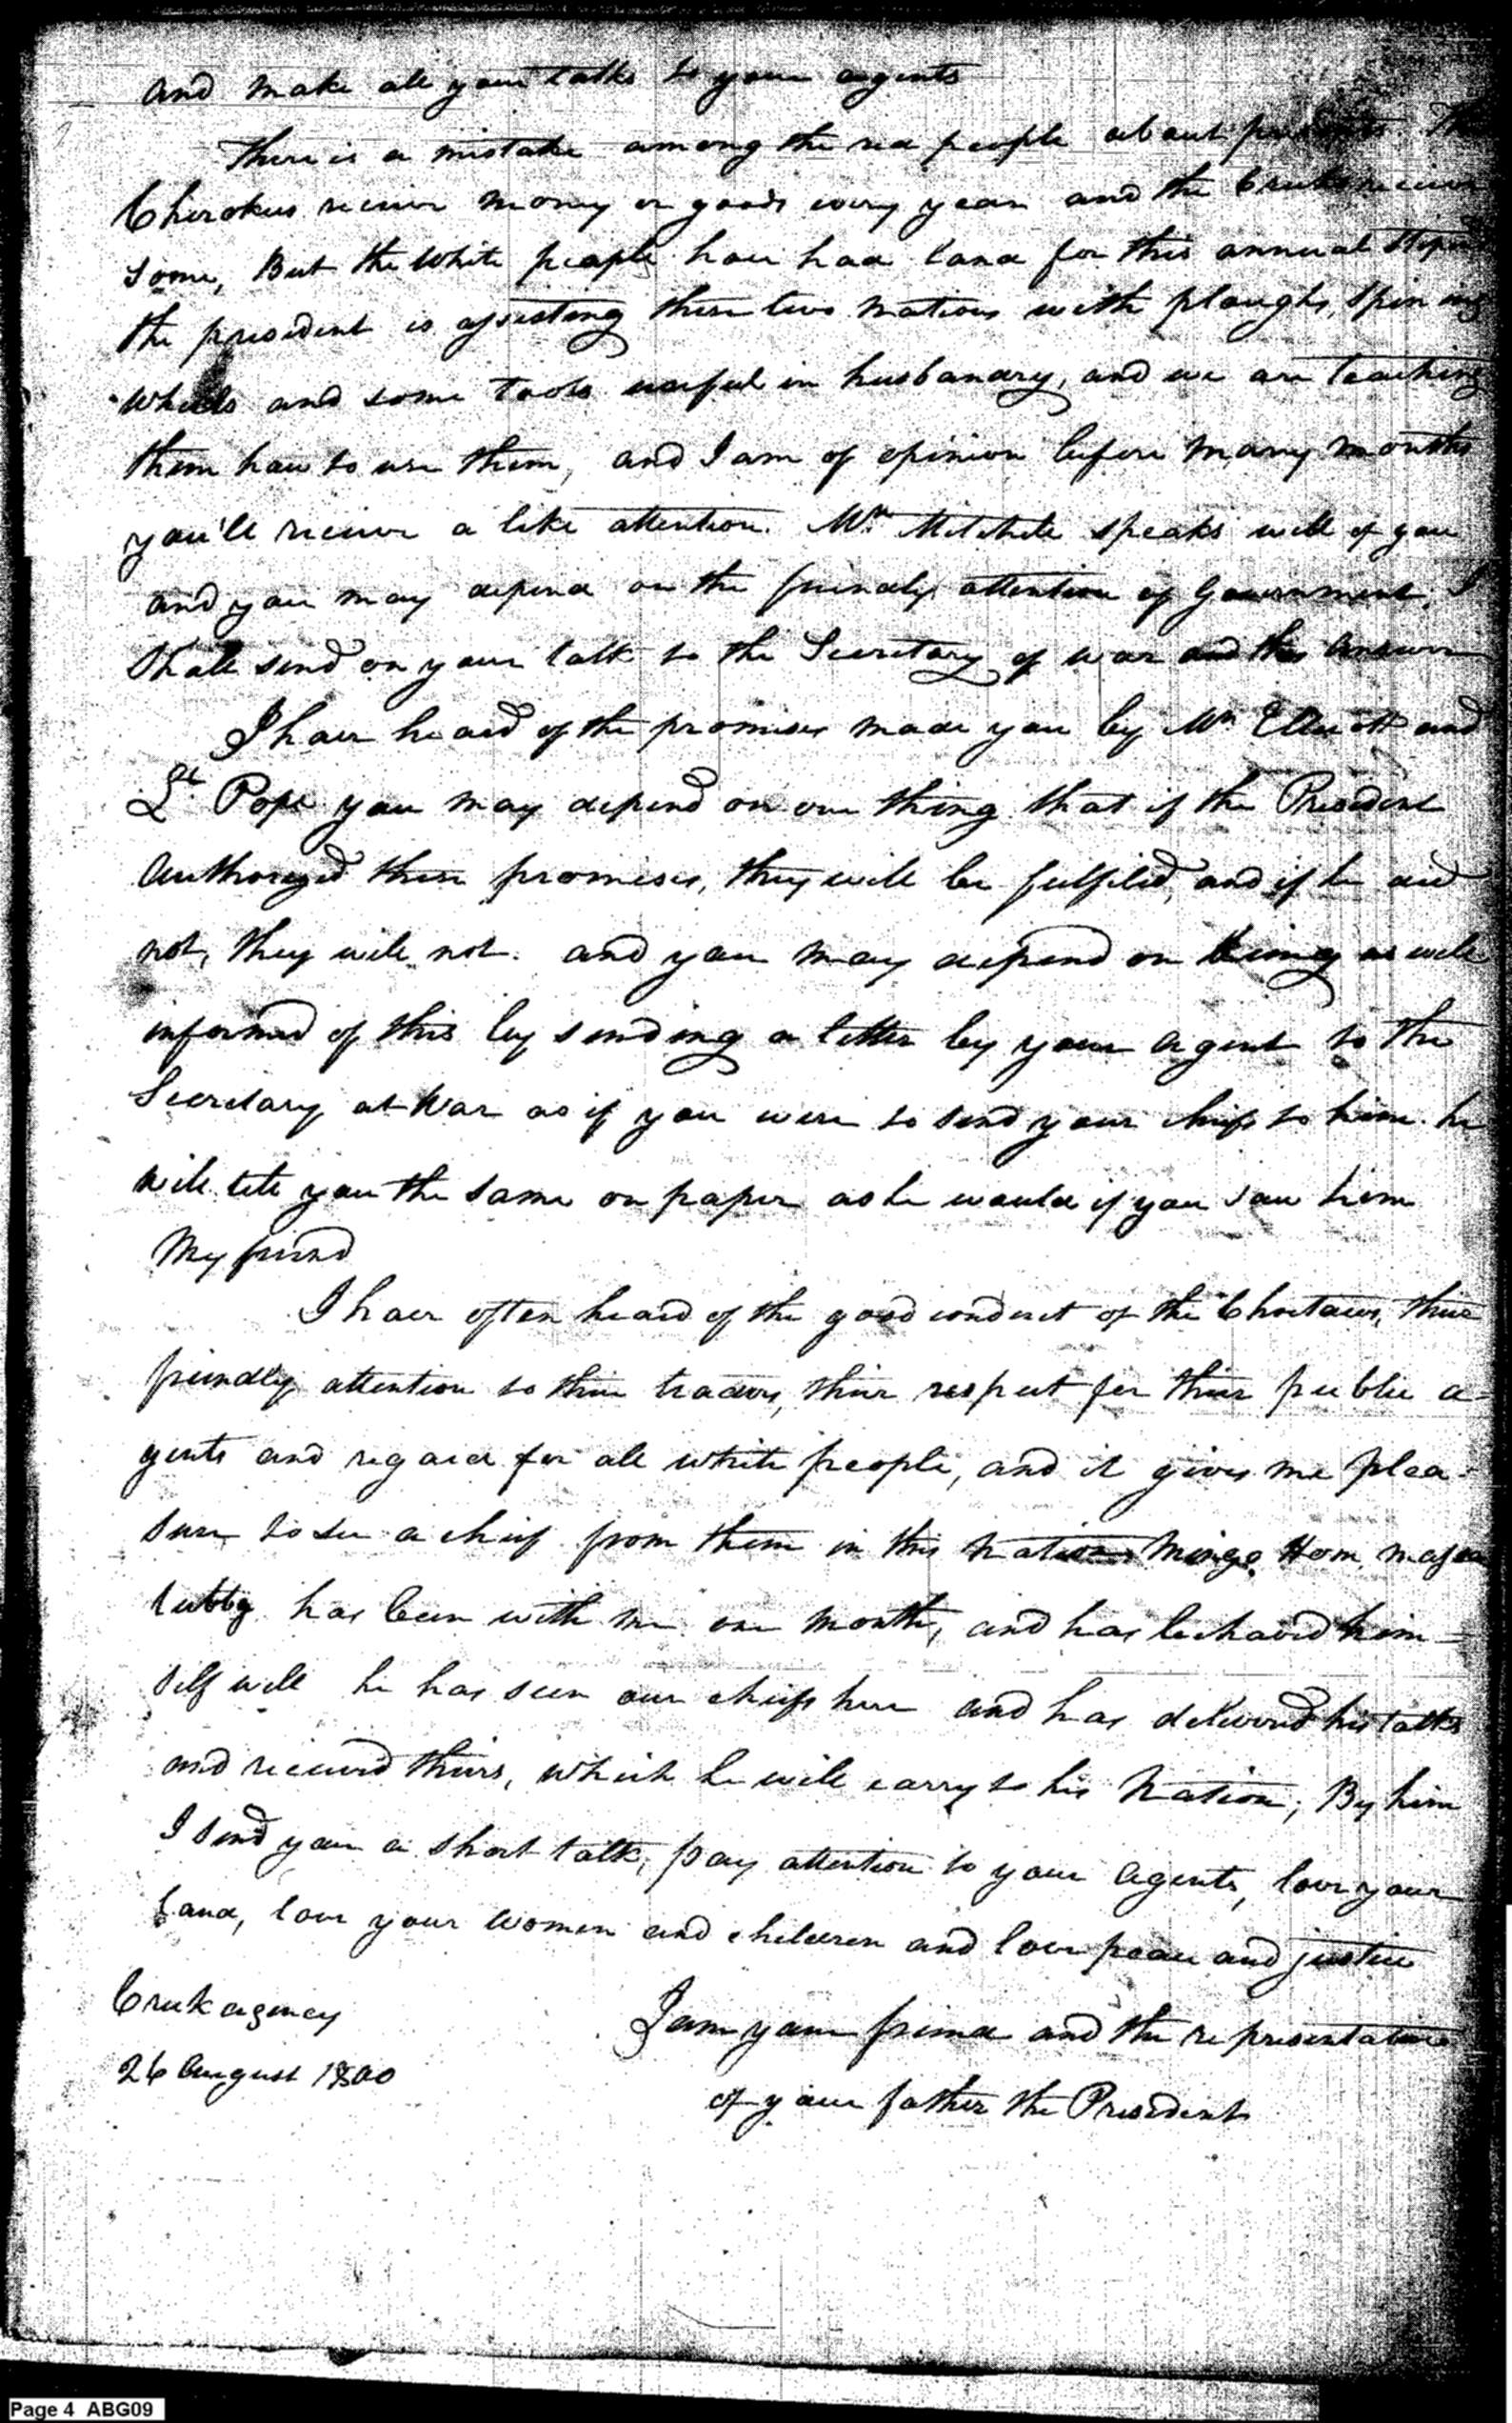 and make all your talks to your agents
There is a mistake among the red people about presents. The
Cherokees receive money or goods every year and the Creeks receive
some, But the white people have had land for this annual
the president is assisting these two nations with ploughs, spinning
wheels and some tools useful in husbandry, and we are teaching
them how to use them, and I am of opinion before many months
you'll receive a like attention. Mr. Mitchell speaks well of you
and you may depend on the friendly attention of Government, I
shall send on your talk to the Secretary of war and this answer
I have heard of the promises made you by Mr. Ellicott and
Lt. Pope you may depend on one thing that if the President
authorized these promises, they will be fulfiled, and if he did
not, they will not. and you may depend on being as well
informed of this by sending a letter by your agent to the
Secretary at War as if you were to send your chiefs to him. he
will tell you the same on paper as he would if you saw him
My friend
I have often heard of the good conduct of the Choctaws, their
friendly attention to their traders, their respect for their public a-
gents and regard for all white people, and it gives me plea-
sure to see a chief from them in this nation. Mingo Hom
tubby has been with me one month, and has behaved him-
self well he has seen our chiefs here and has delivered his talks
and received theirs, which he will carry to his Nation, By him
I send you a short talk, pay attention to your agents, love your
land, love your women and children and love peace and justice
Creek agency
26 August 1800
I am your friend and the representative
of your father the President
Page 4 ABG09